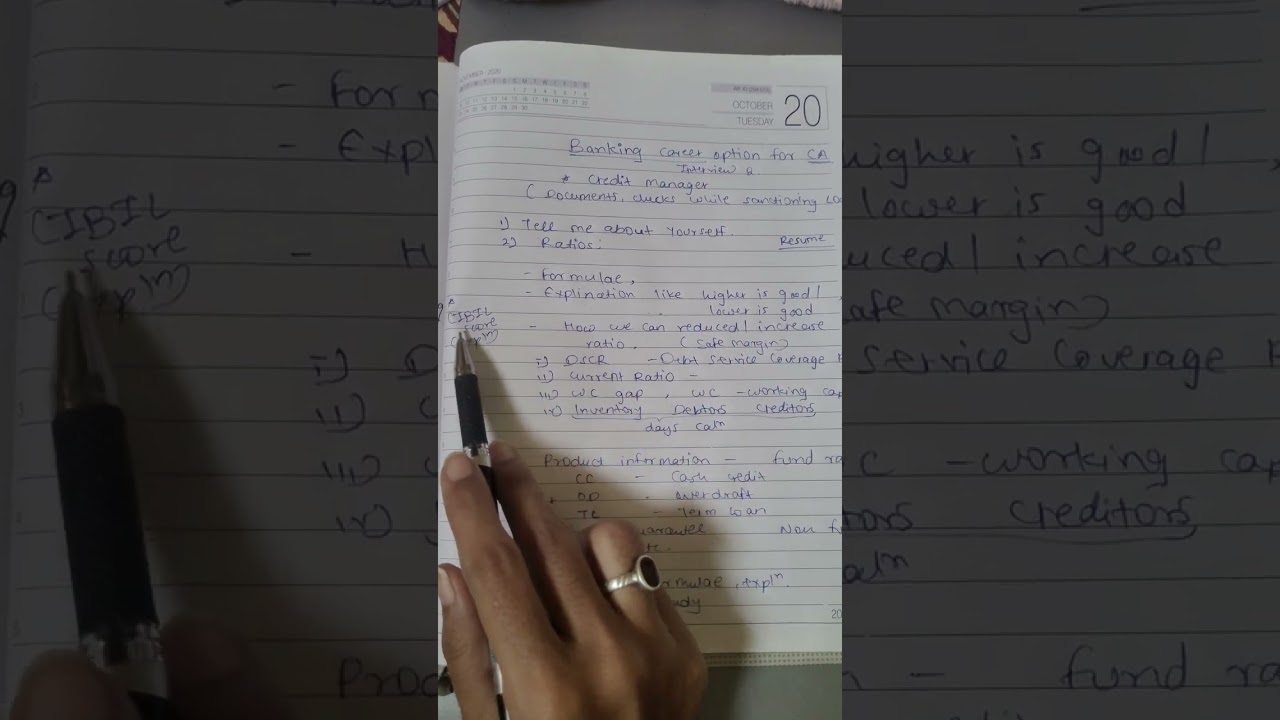 OCTOBER
TUESDAY
20
Banking career option for CA
Interview Q.
* Credit manager
( Documents, checks while sanctioning
1) Tell me about yourself.
2) Ratios:
Resume
- Formulae,
- Explination like higher is good /
lower is good
CIBIL
score
- How we can reduced / increase
ratio. (safe margin)
i) DSCR - Debt Service Coverage
ii) Current Ratio -
iii) WC gap, WC - working cap
iv) Inventory Debtors Creditors,
days calⁿ
Product information - fund ra
CC - Cash credit
OD - overdraft
TL - Term loan
uarantee Non f
etc.
rmulae, explⁿ.
udy
20